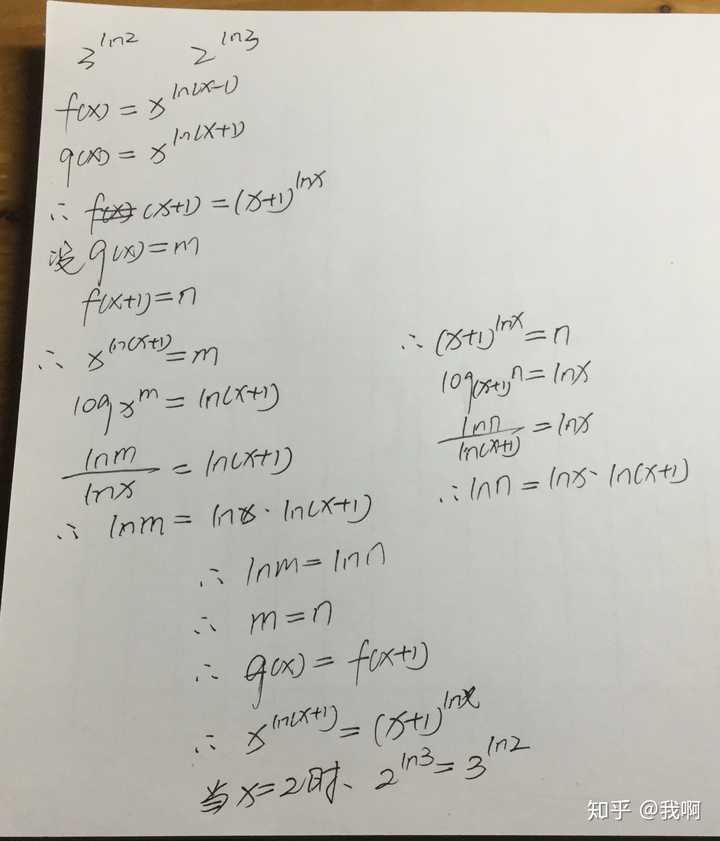 3^{ln2}    2^{ln3}
f(x) = x^{ln(x-1)}
g(x) = x^{ln(x+1)}
∴ f(x) (x+1) = (x+1)^{lnx}
设 g(x) = m
f(x+1) = n
∴ x^{ln(x+1)} = m
log_x m = ln(x+1)
\frac{lnm}{lnx} = ln(x+1)
∴ lnm = lnx · ln(x+1)
∴ (x+1)^{lnx} = n
log_{(x+1)} n = lnx
\frac{lnn}{ln(x+1)} = lnx
∴ lnn = lnx · ln(x+1)
∴ lnm = lnn
∴ m = n
∴ g(x) = f(x+1)
∴ x^{ln(x+1)} = (x+1)^{lnx}
当 x=2时、2^{ln3} = 3^{ln2}
知乎 @我啊